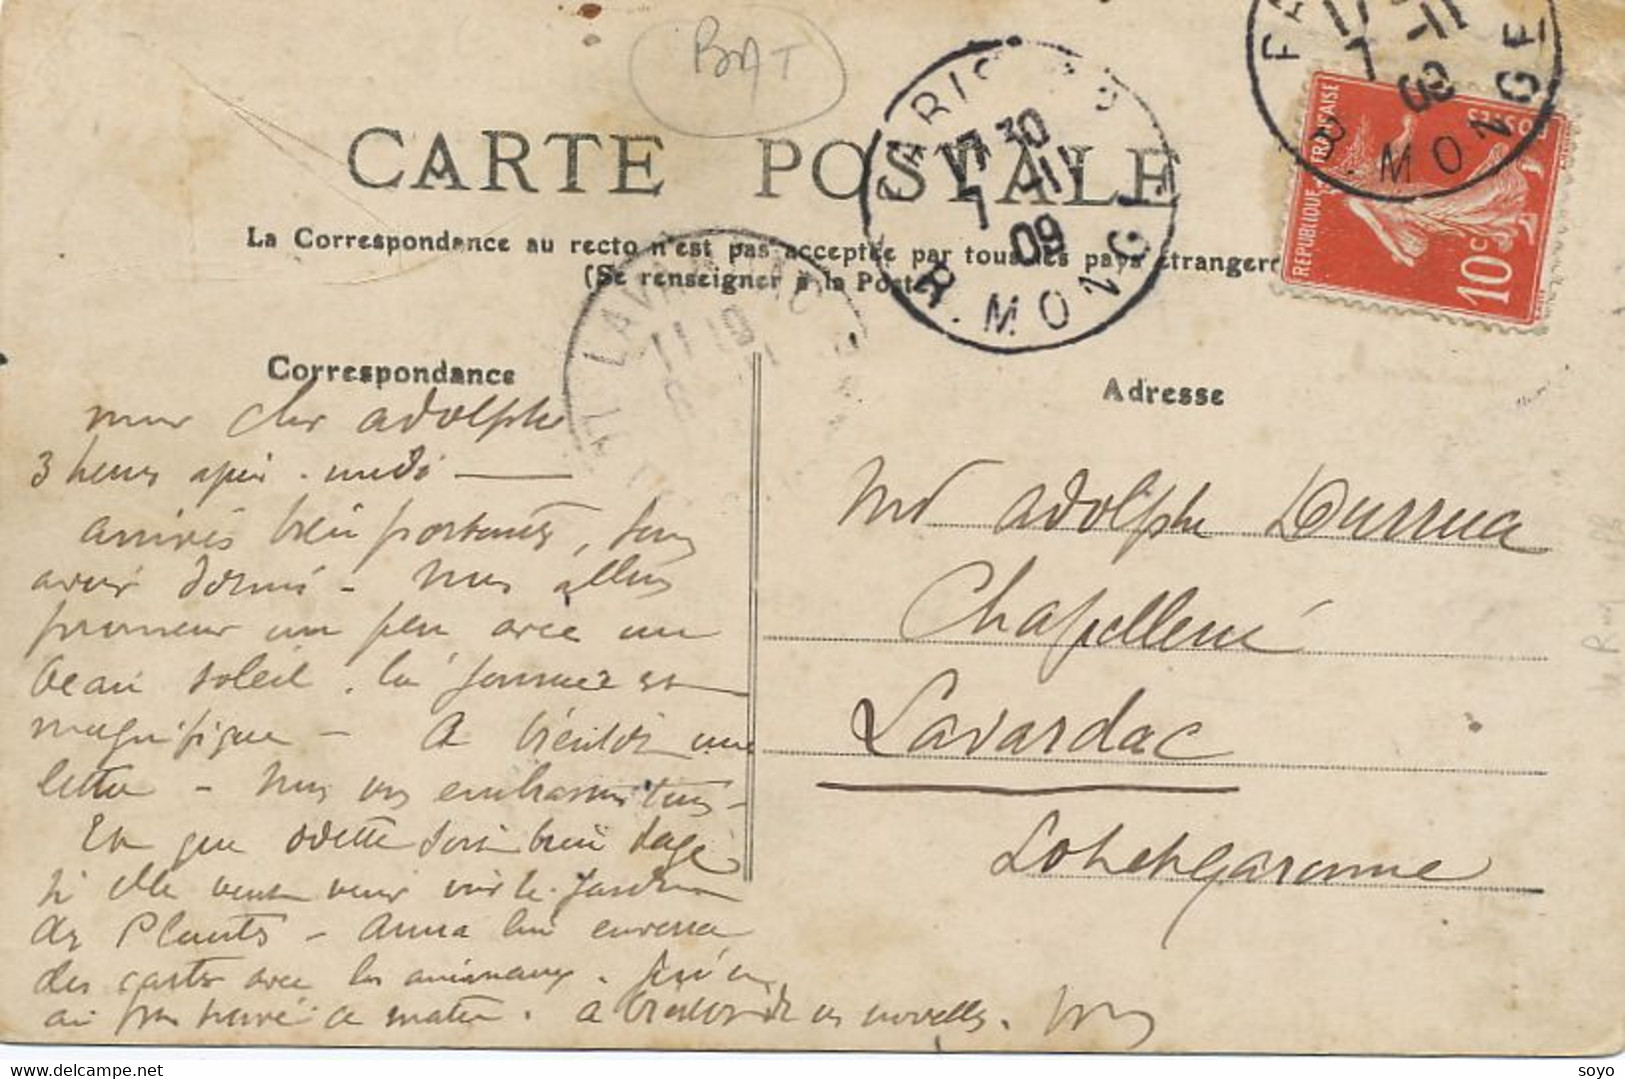 BAT
CARTE POSTALE
La Correspondance au recto n'est pas acceptée par tous les pays étrangers
(Se renseigner à la Poste)
PARIS
17 30
7 -11
09
R. MONGE
7 11
09
R. MONGE
REPUBLIQUE FRANÇAISE
POSTES
10c
LAVARDAC
Correspondance
Adresse
mon cher adolphe
3 heures après-midi
arrivés bien portants, sans
avoir dormi - nous allons
promener un peu avec un
beau soleil, la journée est
magnifique - A bientôt une
lettre - Nous vous embrassons tous -
que odette soit bien sage
si elle veut venir voir le Jardin
des Plantes - Anna lui enverra
des cartes avec les animaux. Je n'en
ai pas trouvé ce matin. a bientôt de vos nouvelles.
Md adolphe Durrua
Chapellerie
Lavardac
Lot et garonne
soyo